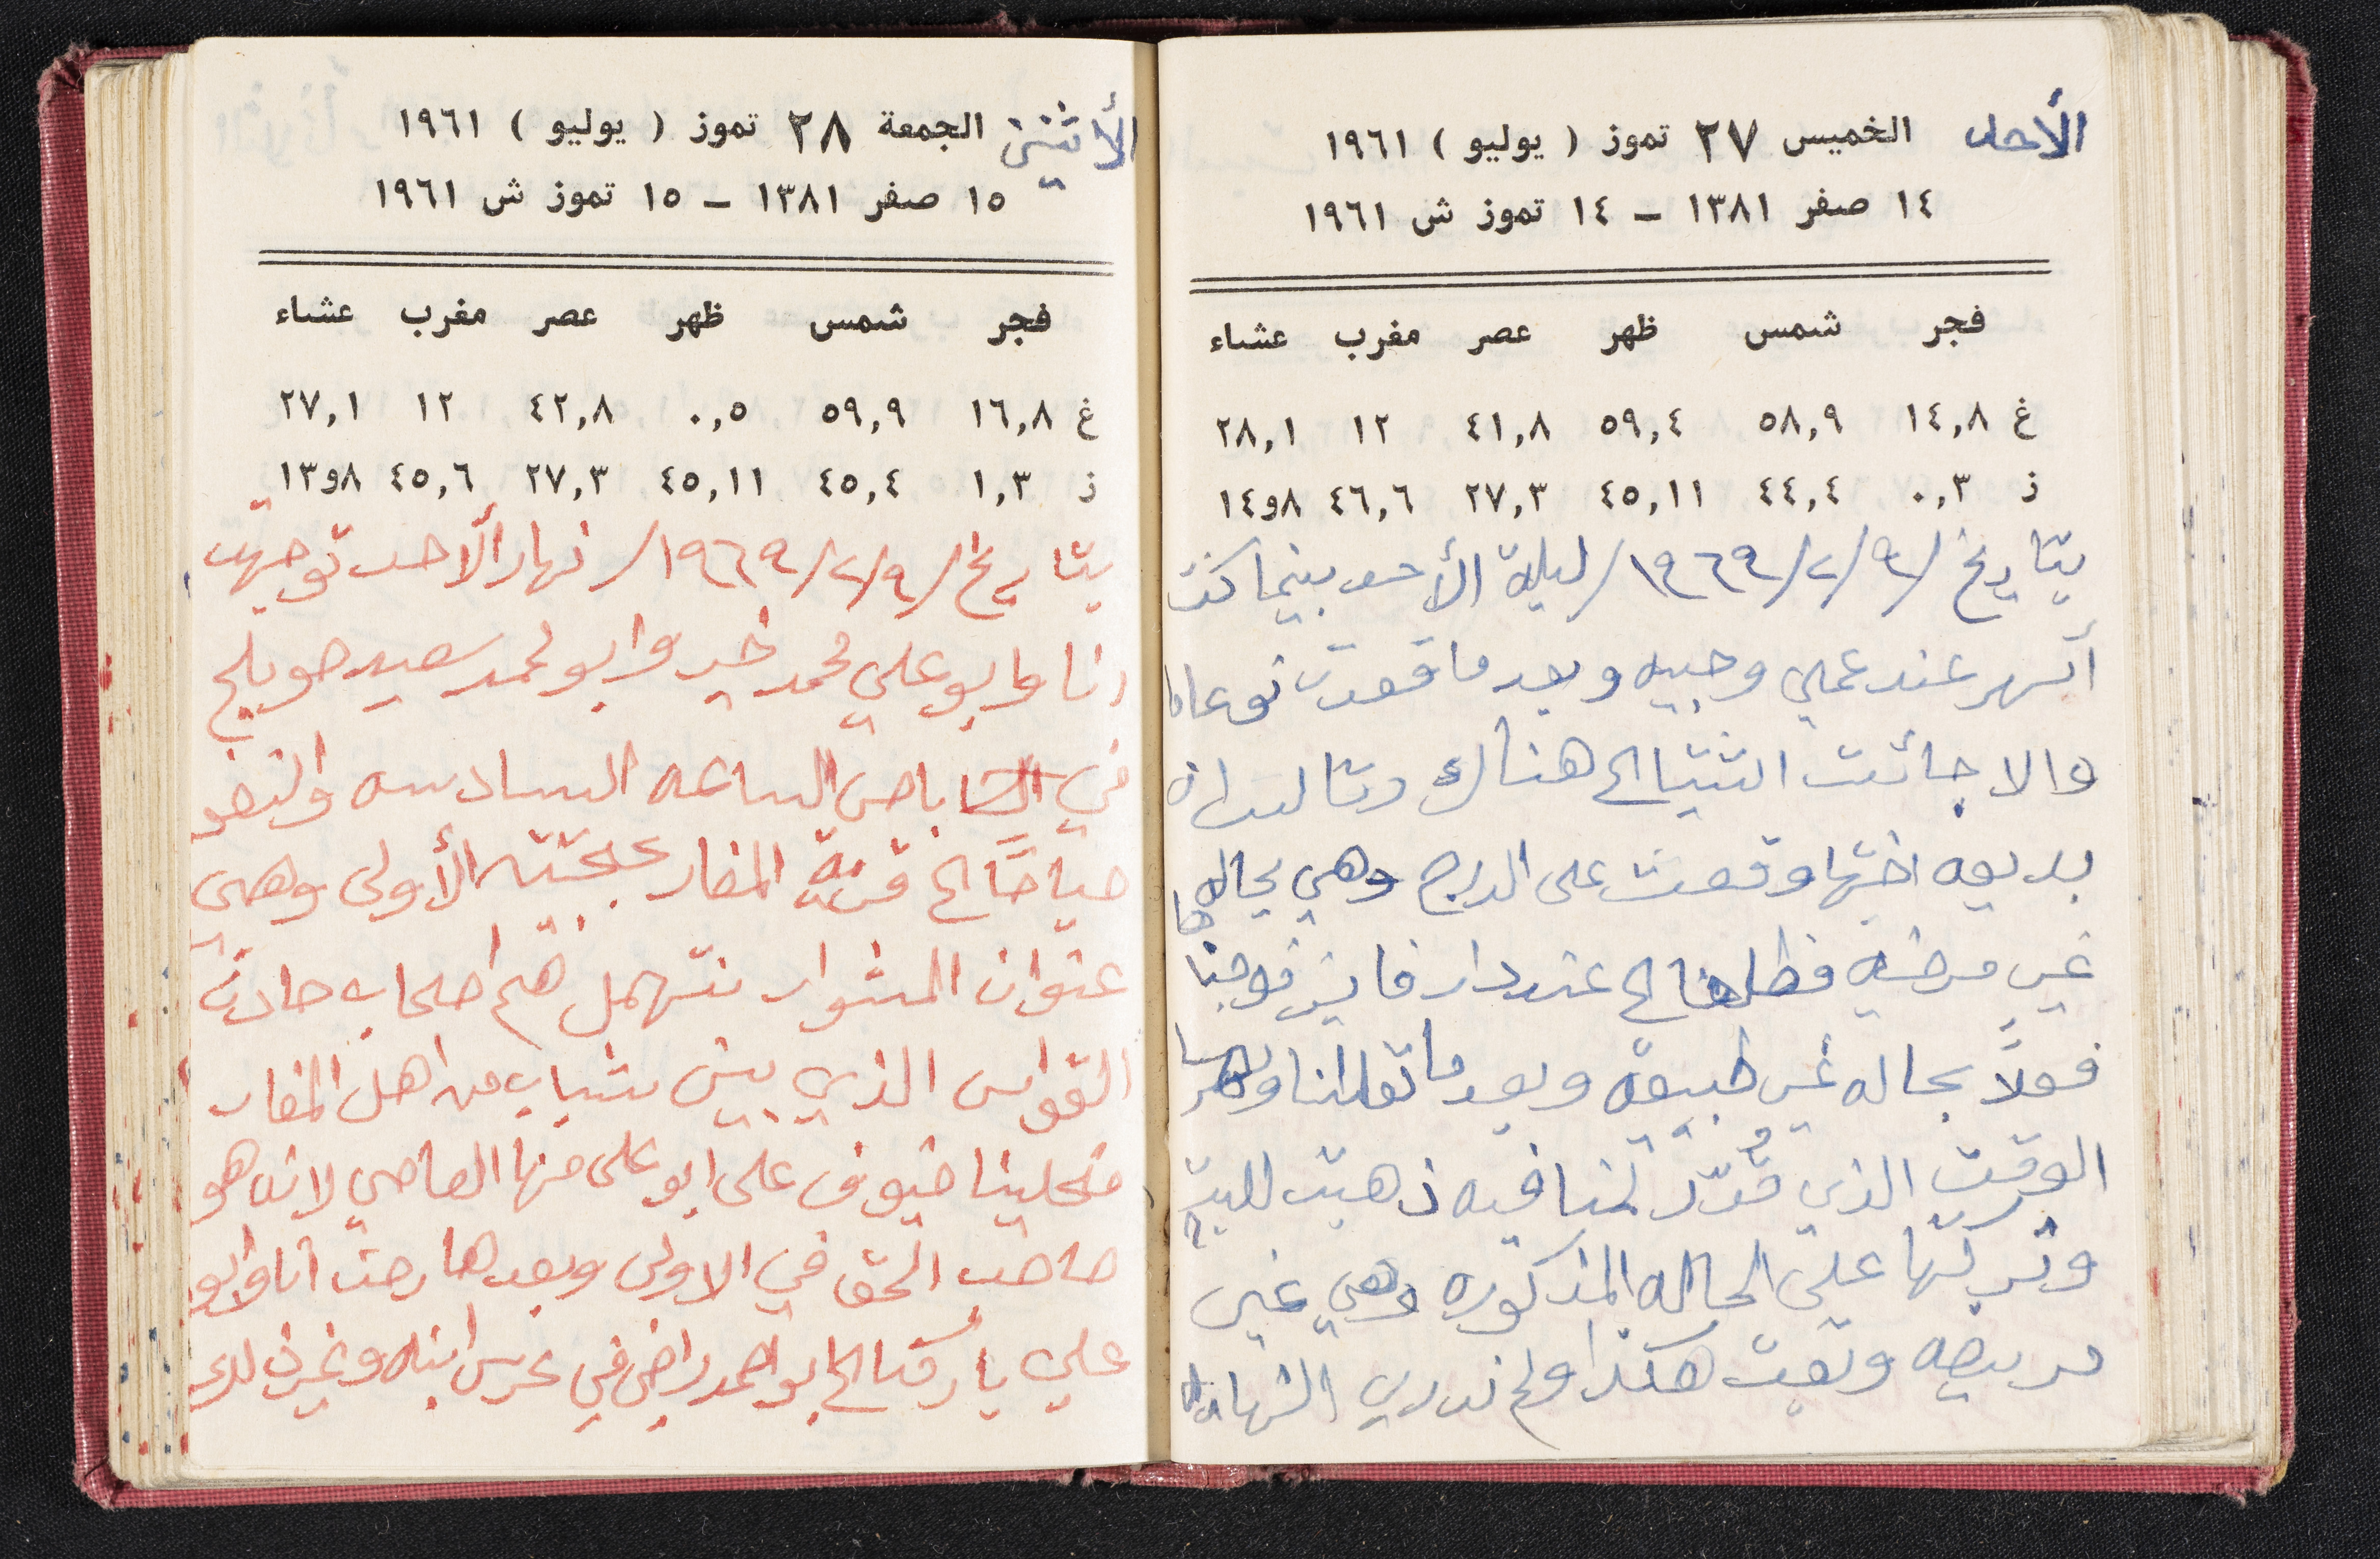 الأحد الخميس ٢٧ تموز ( يوليو ) ١٩٦١
١٤ صفر ١٣٨١ – ١٤ تموز ش ١٩٦١
فجر شمس ظهر عصر مغرب عشاء
غ ١٤,٨ ٥٨,٩ ٥٩,٤ ٤١,٨ ١٢ ٢٨,١
ز ٠,٣ ٤٤,٤ ٤٥,١١ ٢٧,٣ ٤٦,٦ ٨و١٤
بتاريخ /٩/٢/١٩٦٩/ ليلة الأحد بينما كنت
أسهر عند عمي وجيه وبعد ما قعدت نوعاما
والا جائت انتيا الى هناك وقالت ان
بديعه اختها وقعت على الدرج وهي بحاله
غير مرضيه فطلعنا الى عند دار فايز فوجدنا
فعلاً بحاله غير طبيعيه وبعد ما تعللنا
الوقت الذي قُدّر لنا فيه ذهبت للبيت
وتركتها على الحاله المذكوره وهي غير
مريحه وبقيت هكذا ولم ندري النهايه
الأثنين الجمعة ٢٨ تموز ( يوليو ) ١٩٦١
١٥ صفر ١٣٨١ – ١٥ تموز ش ١٩٦١
فجر شمس ظهر عصر مغرب عشاء
غ ١٦,٨ ٥٩,٩ ٠,٥ ٤٢,٨ ١٢ ٢٧,١
ز ١,٣ ٤٥,٤ ٤٥,١١ ٢٧,٣ ٤٥,٦ ٨و١٣
بتاريخ /٩/٢/١٩٦٩/ نهار ألاحد توجهت
انا وابو علي محمد خير وابو محمد سعيد صويلح
في باص الساعه السادسه والنصف
صباحًا الى قرية المغار الأولى وهي
عنوان المشوار هم اصحاب حادث
القواس الذي بين شباب من اهل المغار
فحلينا ضيوف على ابو علي مهنا العاصي لانه هو
صاحب الحق في الاولى وبعدها رحت انا وابو
علي باركنا الى ابو احمد راضي في عرس ابنه